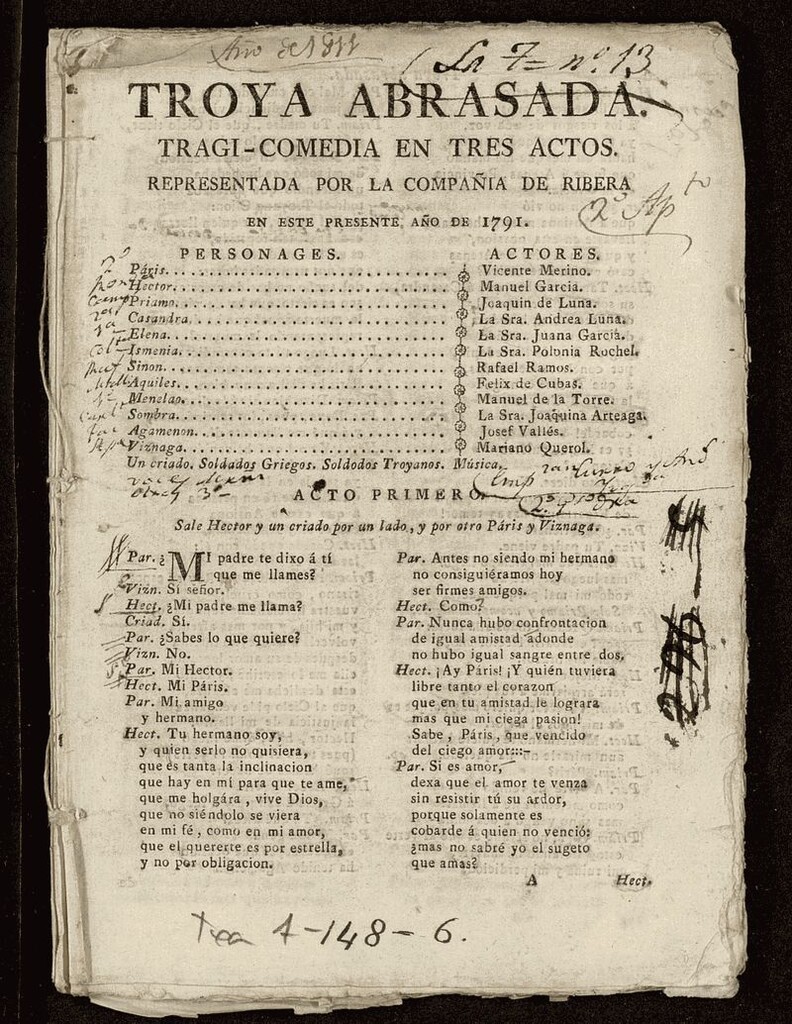 Año de 1811
La 7 = nº. 13
TROYA ABRASADA.
TRAGI-COMEDIA EN TRES ACTOS.
REPRESENTADA POR LA COMPAÑIA DE RIBERA
2º Apto
EN ESTE PRESENTE AÑO DE 1791.
PERSONAGES. ACTORES.
Páris. Vicente Merino.
Hector. Manuel Garcia.
Priamo. Joaquin de Luna.
Casandra. La Sra. Andrea Luna.
Elena. La Sra. Juana García.
Ismenia. La Sra. Polonia Rochel.
Sinon. Rafael Ramos.
Aquiles. Felix de Cubas.
Menelao. Manuel de la Torre.
Sombra. La Sra. Joaquina Arteaga.
Agamenon. Josef Vallés.
Viznaga. Mariano Querol.
Un criado. Soldados Griegos. Soldodos Troyanos. Música.
ACTO PRIMERO.
Sale Hector y un criado por un lado, y por otro Páris y Viznaga.
Par. ¿MI padre te dixo á tí
que me llames?
Vizn. Sí señor.
Hect. ¿Mi padre me llama?
Criad. Sí.
Par. ¿Sabes lo que quiere?
Vizn. No.
Par. Mi Hector.
Hect. Mi Páris.
Par. Mi amigo
y hermano.
Hect. Tu hermano soy,
y quien serlo no quisiera,
que es tanta la inclinacion
que hay en mí para que te ame,
que me holgára, vive Dios,
que no siéndolo se viera
en mi fé, como en mi amor,
que el quererte es por estrella,
y no por obligacion.
Par. Antes no siendo mi hermano
no consiguiéramos hoy
ser firmes amigos.
Hect. Como?
Par. Nunca hubo confrontacion
de igual amistad adonde
no hubo igual sangre entre dos.
Hect. ¡Ay Páris! ¡Y quién tuviera
libre tanto el corazon
que en tu amistad le lograra
mas que mi ciega pasion!
Sabe, Páris, que vencido
del ciego amor:::-
Par. Si es amor,
dexa que el amor te venza
sin resistir tú su ardor,
porque solamente es
cobarde á quien no venció:
¿mas no sabré yo el sugeto
que amas?
A Hect.
Tea 1-148-6.